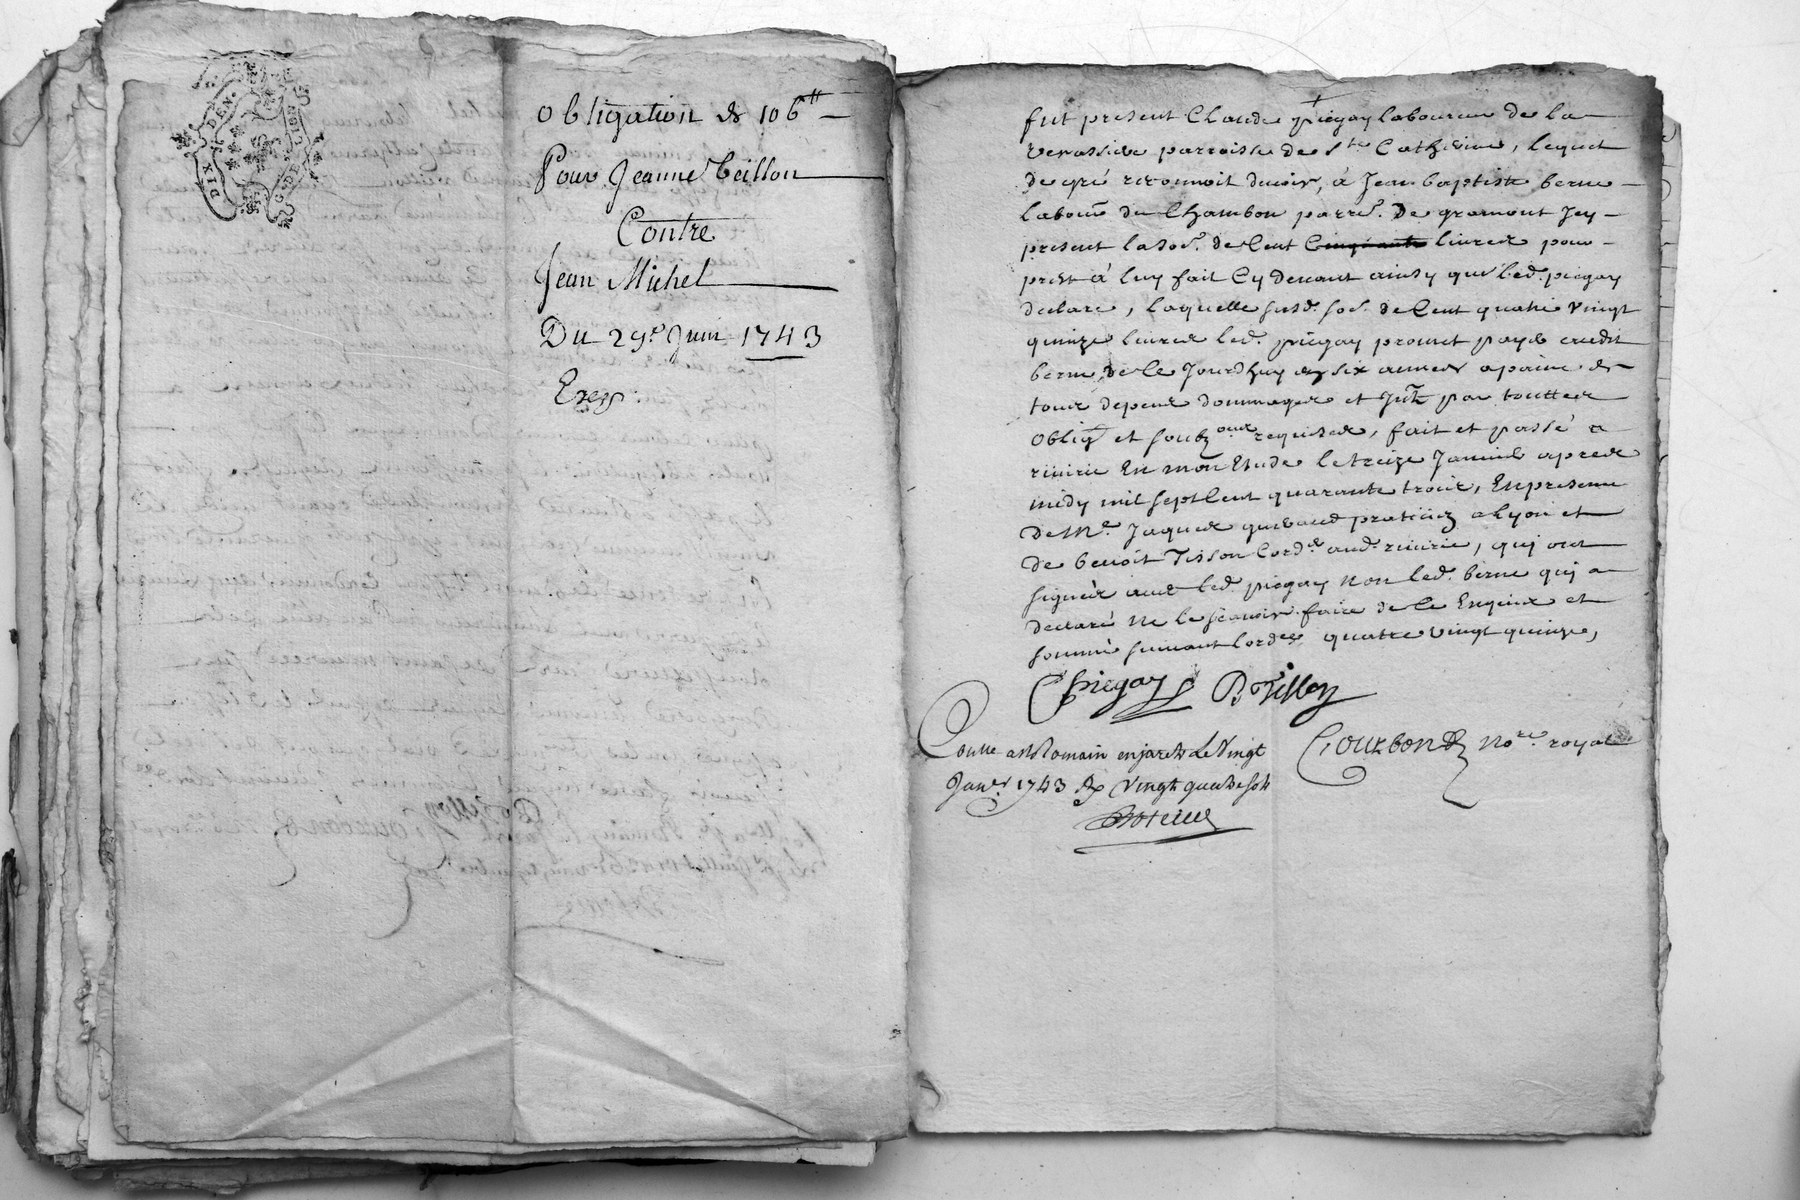 DIX DEN.
G. DE LION
Obligation de 106 ₶
Pour Jeanne Teillon
Contre
Jean Michel
Du 29e. Juin 1743
Exp.
fut present Claude piegay laboureur de la
parroisse de Ste Catherine, lequel
de gré reconnoit devoir, a Jean baptiste berne
labour du Chambon parre. De gramont Jcy
present la so͞e. de Cent Cinquante livres pour
prest à luy fait Cy devant ainsy que led. piegay
declare, laquelle susd. so͞e. de Cent quatre vingt
quinze livres led. piegay promet payé audit
berne de Ce Jourdhuy en six années apaine de
tous depens dommages et Jnts par touttes
oblig et soubz requises, fait et passé a
riverie En mon Etude le treize Janvier apres
midy mil sept Cent quarante trois, En presence
De Me. Jaques praticien a Lyon et
de benoit Tisson Cordr. aud. riverie, qui ont
signés avec led. piegay non led. berne qui a
declaré ne le sçavoir faire de Ce Enquis et
sommé suivant lordce quatre vingt quinze,
C piegay B Tisson
Conlle a St Romain en jarest Le Vingt
Janer. 1743 Rx Vingt quatre sols
Gourbon Nore. royal